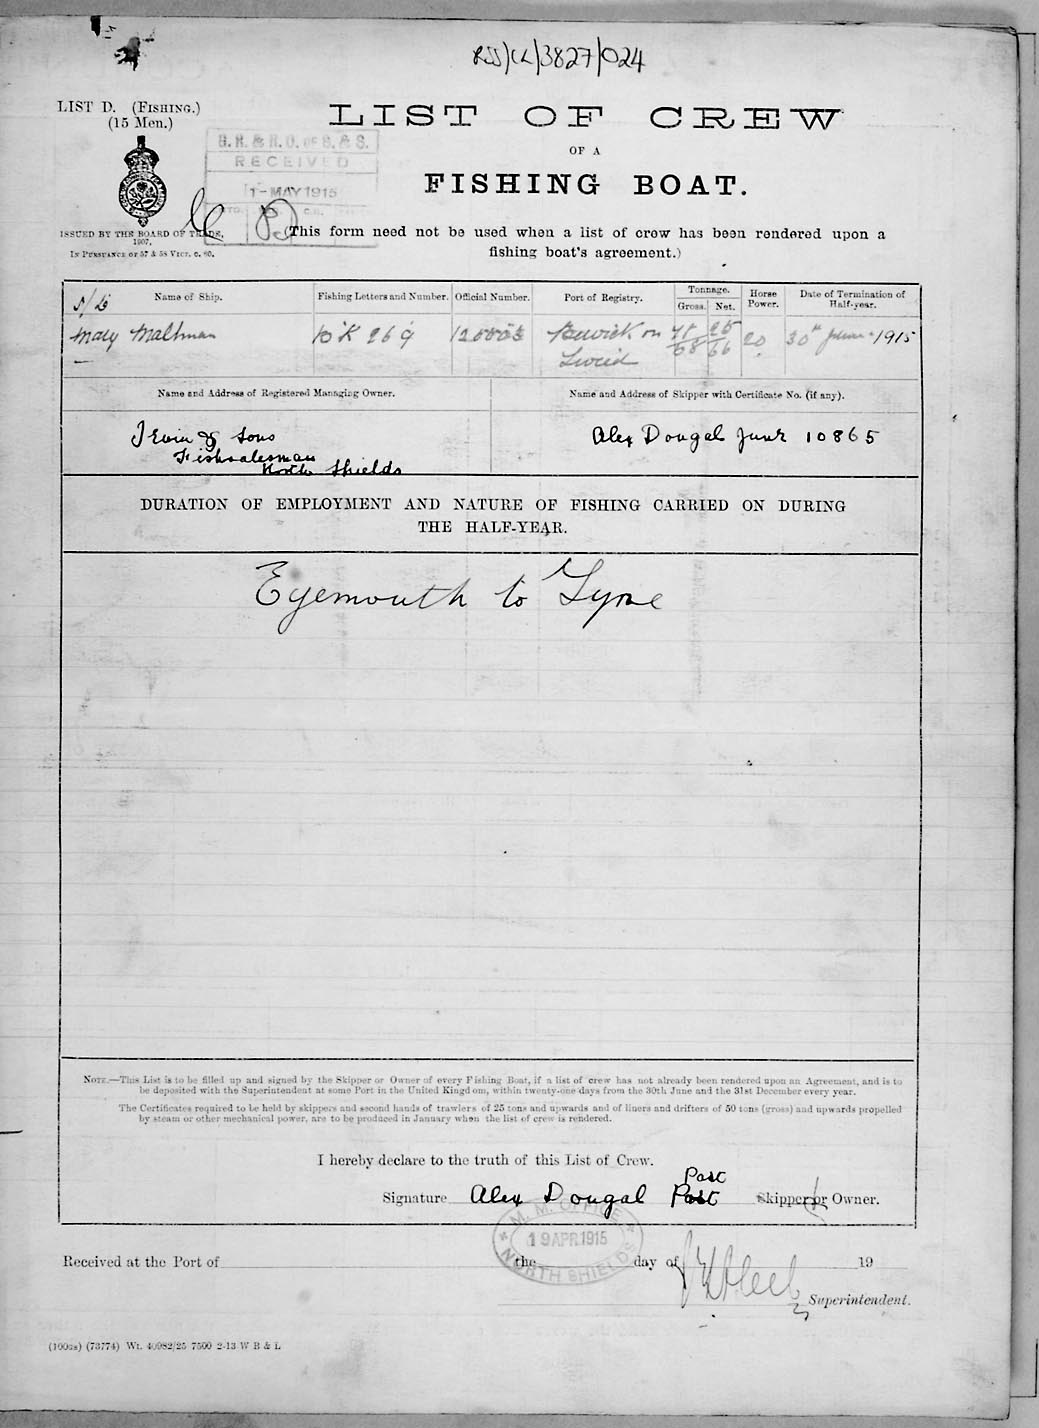 RSS/CL/3827/024
LIST D. (FISHING.)
(15 Men.)
LIST OF CREW
OF A
FISHING BOAT.
G. R. & R. O. OF S. & S.
RECEIVED
1-MAY 1915
ISSUED BY THE BOARD OF TRADE,
1907,
IN PURSUANCE OF 57 & 58 VICT. C. 60.
(This form need not be used when a list of crew has been rendered upon a
fishing boat's agreement.)
Name of Ship. Fishing Letters and Number. Official Number. Port of Registry. Tonnage. Gross. Net. Horse Power. Date of Termination of Half-year.
Mary Maltman BK 269 Berwick on Tweed 20 30th June 1915
Name and Address of Registered Managing Owner. Name and Address of Skipper with Certificate No. (if any).
Irvin & Sons Alex Dougal Junr 10865
Fishsalesman
North Shields
DURATION OF EMPLOYMENT AND NATURE OF FISHING CARRIED ON DURING
THE HALF-YEAR.
Eyemouth to Tyne
NOTE.—This List is to be filled up and signed by the Skipper or Owner of every Fishing Boat, if a list of crew has not already been rendered upon an Agreement, and is to
be deposited with the Superintendent at some Port in the United Kingdom, within twenty-one days from the 30th June and the 31st December every year.
The Certificates required to be held by skippers and second hands of trawlers of 25 tons and upwards and of liners and drifters of 50 tons (gross) and upwards propelled
by steam or other mechanical power, are to be produced in January when the list of crew is rendered.
I hereby declare to the truth of this List of Crew.
Part
Signature Alex Dougal Part Skipper or Owner.
M. M. OFFICE
19 APR 1915
NORTH SHIELDS
Received at the Port of the day of 19
Superintendent.
(100GS) (73774) Wt. 40982/25 7500 2-13 W B & L